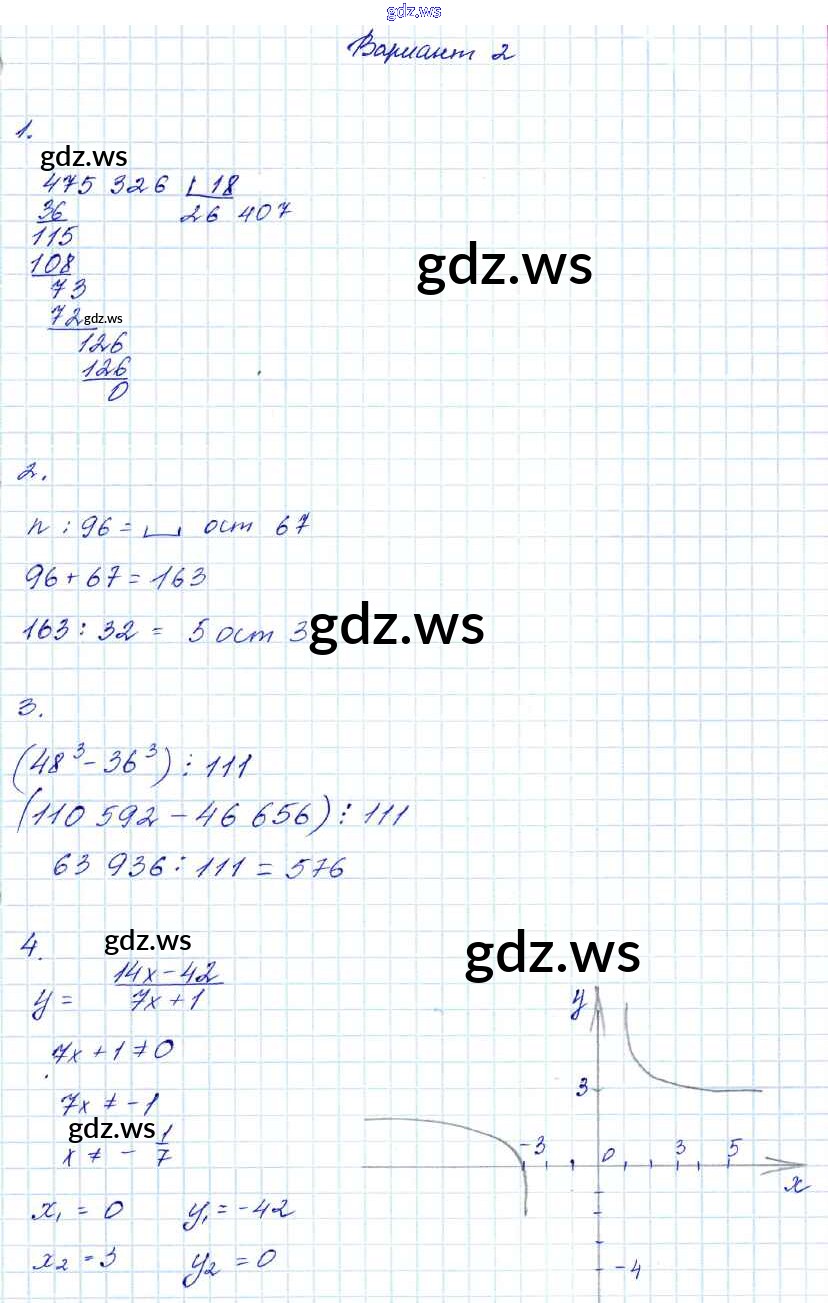 gdz.ws
Вариант 2
1.
gdz.ws
475 326 18
36 26 407
115
gdz.ws
108
73
72 gdz.ws
126
126
0
2.
n : 96 = ост 67
96 + 67 = 163
163 : 32 = 5 ост 3
gdz.ws
3.
(48³ - 36³) : 111
(110 592 - 46 656) : 111
63 936 : 111 = 576
4.
gdz.ws
gdz.ws
y = (14x - 42)/(7x + 1)
7x + 1 ≠ 0
7x ≠ -1
gdz.ws
x ≠ - 1/7
x₁ = 0 y₁ = -42
x₂ = 3 y₂ = 0
y
3
-3 0 3 5
x
-4